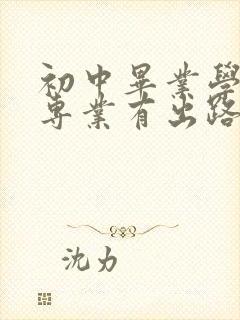 初中畢業學
專業有出路
沈力